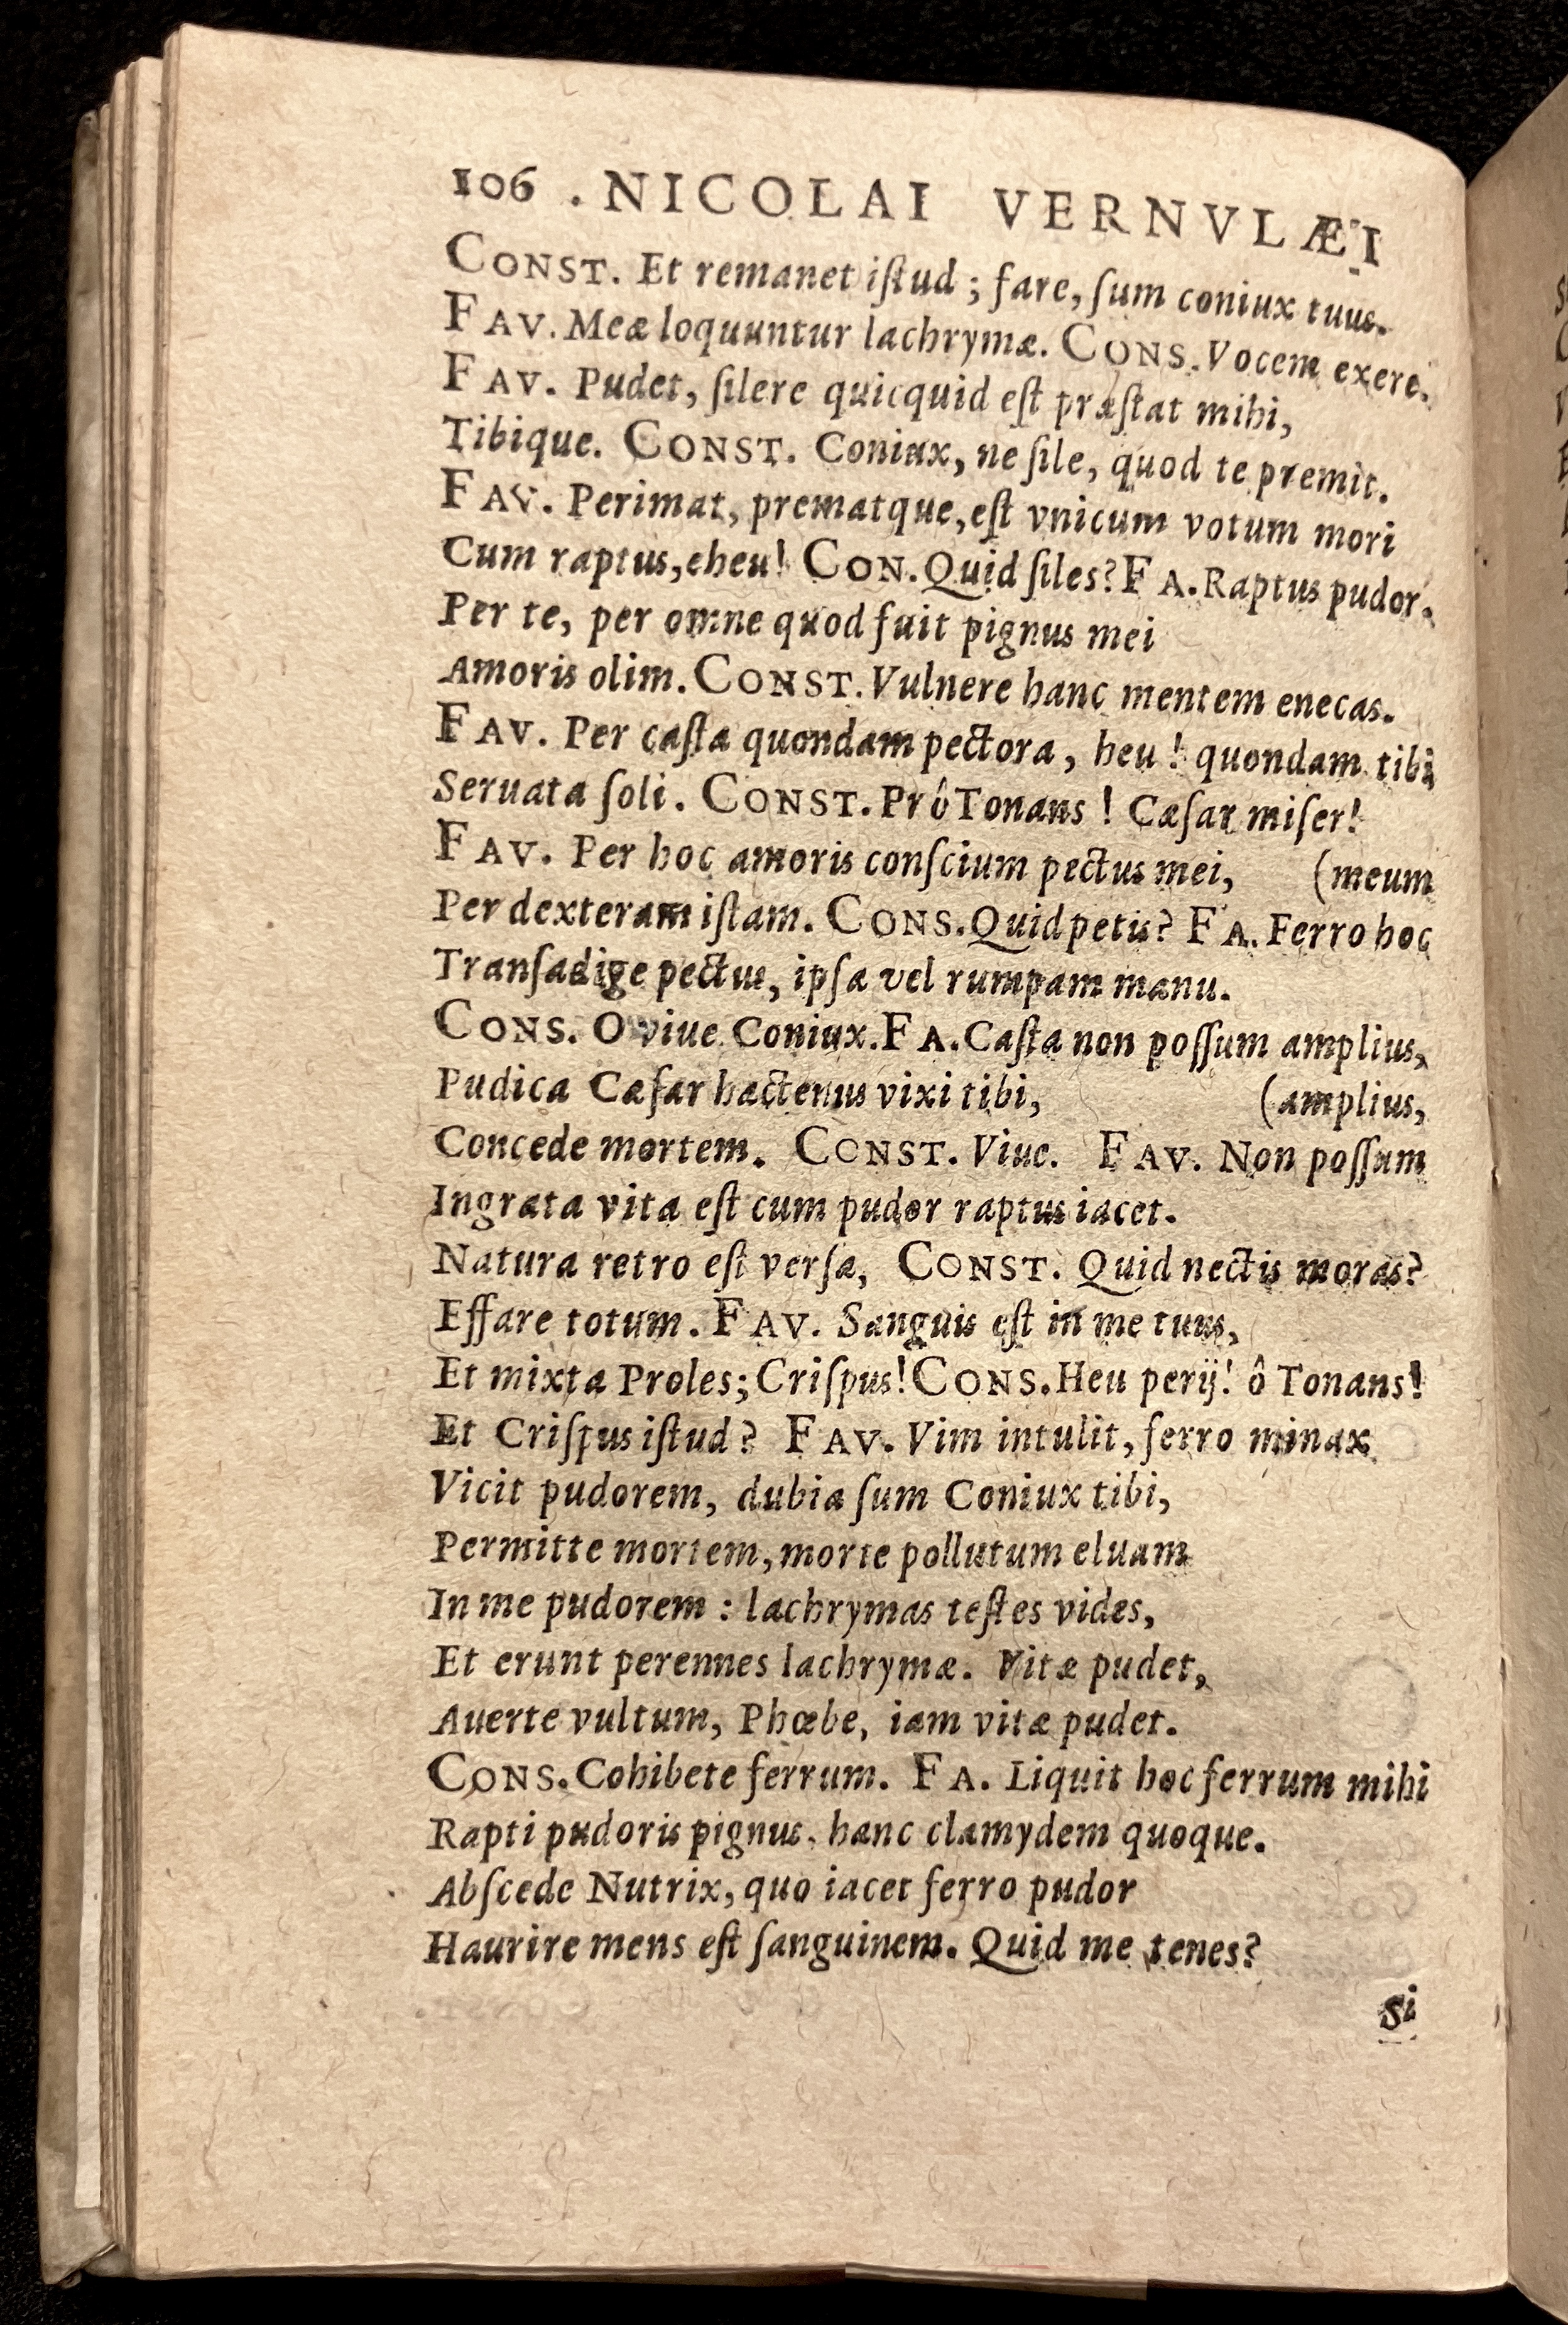 106 . NICOLAI VERNVLÆI
CONST. Et remanet iſtud ; fare, ſum coniux tuus.
FAV. Meæ loquuntur lachrymæ. CONS. Vocem exere.
FAV. Pudet, ſilere quicquid eſt præſtat mihi,
Tibique. CONST. Coniux, ne ſile, quod te premit.
FAV. Perimat, prematque, eſt vnicum votum mori
Cum raptus, eheu! CON. Quid ſiles? FA. Raptus pudor.
Per te, per omne quod fuit pignus mei
Amoris olim. CONST. Vulnere hanc mentem enecas.
FAV. Per caſta quondam pectora, heu ! quondam tibi
Seruata ſoli. CONST. Prô Tonans ! Cæſar miſer!
FAV. Per hoc amoris conſcium pectus mei, (meum
Per dexteram iſtam. CONS. Quid petis? FA. Ferro hoc
Tranſadige pectus, ipſa vel rumpam manu.
CONS. O viue Coniux. FA. Caſta non poſſum amplius,
Pudica Cæſar hactenus vixi tibi, (amplius,
Concede mortem. CONST. Viue. FAV. Non poſſum
Ingrata vita eſt cum pudor raptus iacet.
Natura retro eſt verſa, CONST. Quid nectis moras?
Effare totum. FAV. Sanguis eſt in me tuus,
Et mixta Proles; Criſpus! CONS. Heu perij! ô Tonans!
Et Criſpus iſtud? FAV. Vim intulit, ferro minax
Vicit pudorem, dubia ſum Coniux tibi,
Permitte mortem, morte pollutum eluam
In me pudorem : lachrymas teſtes vides,
Et erunt perennes lachrymæ. Vitæ pudet,
Auerte vultum, Phœbe, iam vitæ pudet.
CONS. Cohibete ferrum. FA. Liquit hoc ferrum mihi
Rapti pudoris pignus, hanc clamydem quoque.
Abſcede Nutrix, quo iacet ferro pudor
Haurire mens eſt ſanguinem. Quid me tenes?
Si